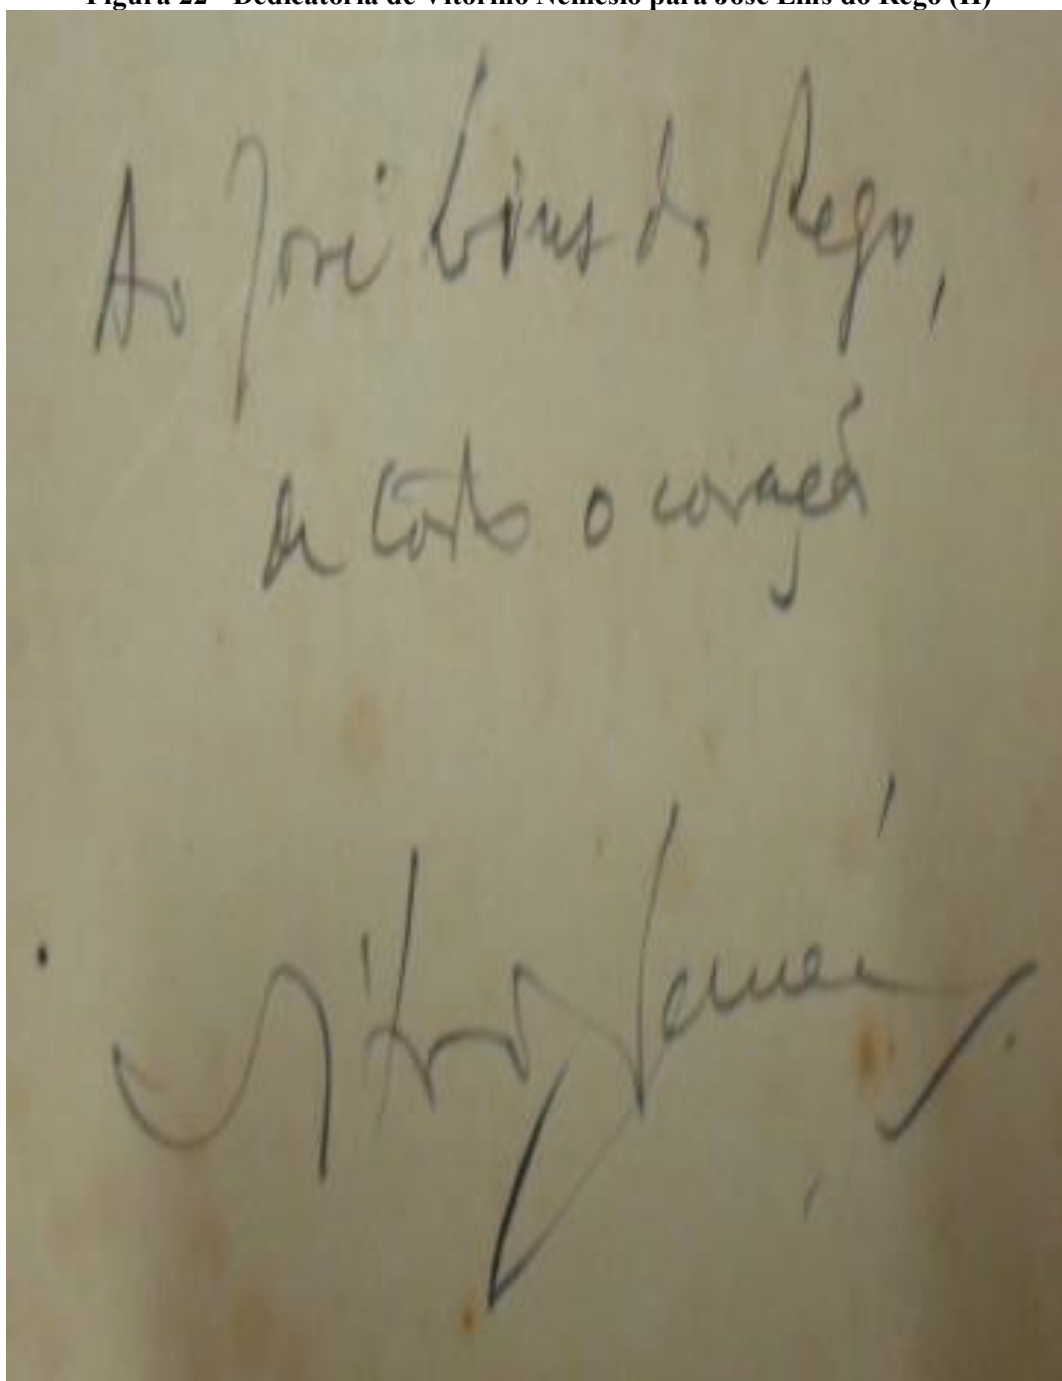 Figura 22 - Dedicatória de Vitorino Nemésio para José Lins do Rego (II)
Ao José Lins do Rego,
de todo o coração
Vitorino Nemésio